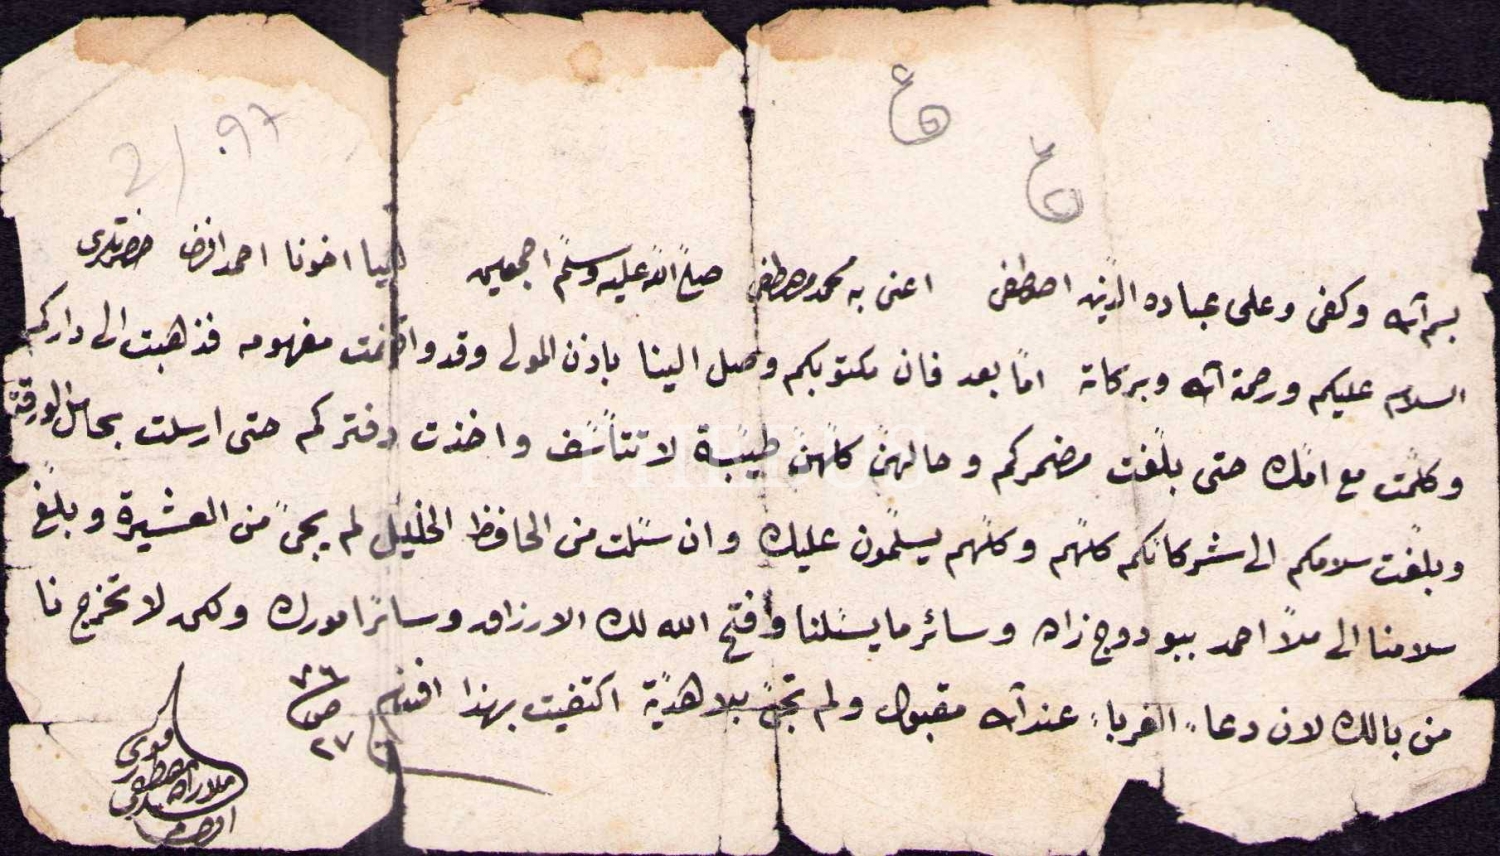 2/.97
بسم الله وكفى وعلى عباده الذين اصطفى اعنى به محمد مصطفى صلى الله عليه وسلم اجمعين ايها اخونا احمد افندى
السلام عليكم ورحمة الله وبركاته امّا بعد فان مكتوبكم وصل الينا باذن المولى وقد وافهمت مفهومه فذهبت الى داركم
وكلّمت مع امّك حتى بلّغت مضمركم وحالهنّ كلّهنّ طيّبة لا تتأسّف واخذت دفتركم حتى ارسلت بحامل الورقة
وبلّغت سلامكم الى شركائكم كلّهم وكلّهم يسلّمون عليك وان سئلت من الحافظ الخليل لم يجئ من العشيرة وبلّغ
سلامنا الى ملّا احمد وسائر ما يسئلنا وافتح الله لك الارزاق وسائر امورك ولكن لا تخرج نا
من بالك لان دعاء الغرباء عند الله مقبول ولم تجئ بلا هديّة اكتفيت بهذا افندم
ص
٢٧
PHEBUS